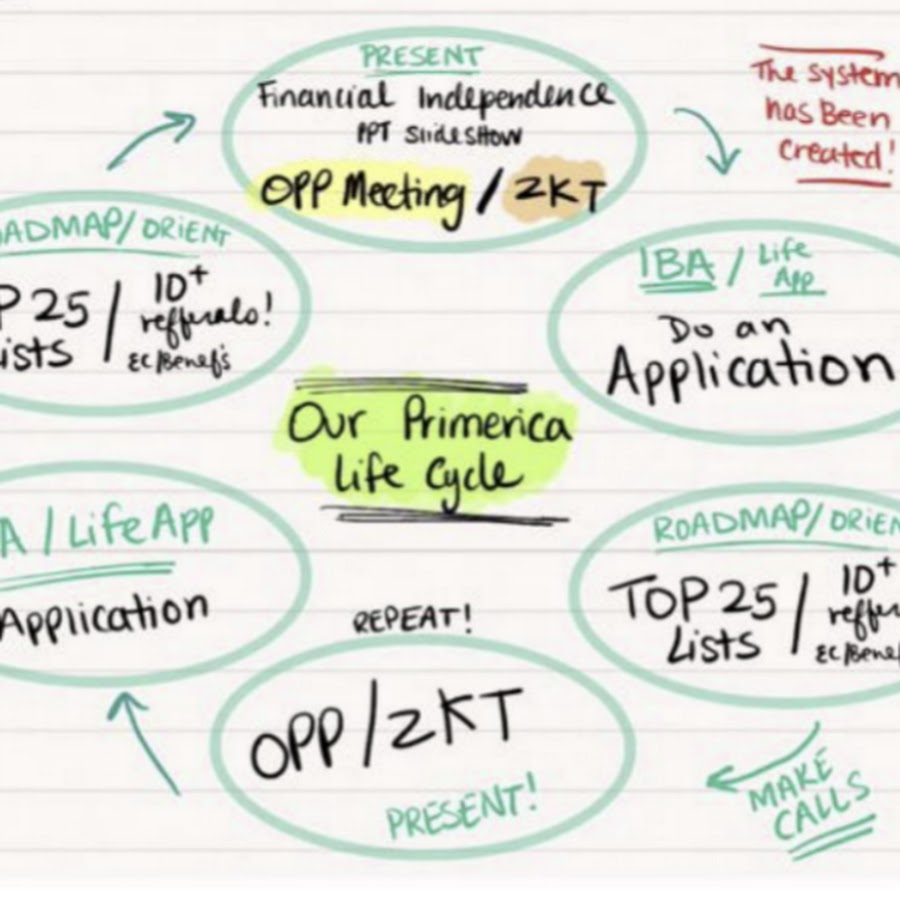 PRESENT
Financial Independence
PPT SlideSHOW
OPP Meeting / 2KT
The System
has Been
Created!
IBA / Life App
Do an
Application
ROADMAP/ORIEN
TOP 25 Lists / 10+ reffer
EC/Benef
MAKE
CALLS
OPP/2KT
PRESENT!
REPEAT!
A / Life App
Application
OADMAP/ORIENT
P 25 ists / 10+ refferals!
EC/Benef's
Our Primerica
Life Cycle